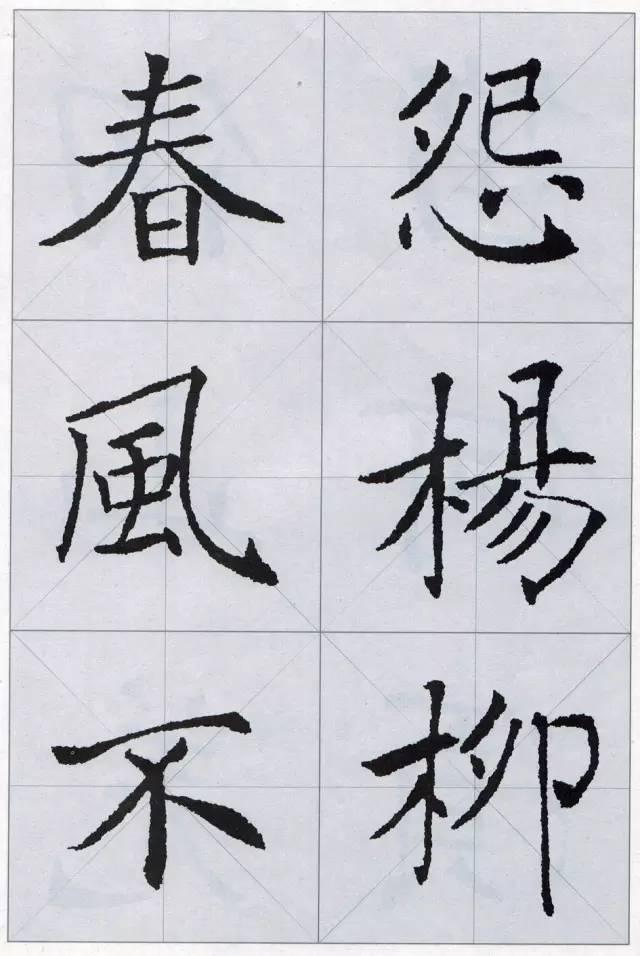 怨楊柳
春風不